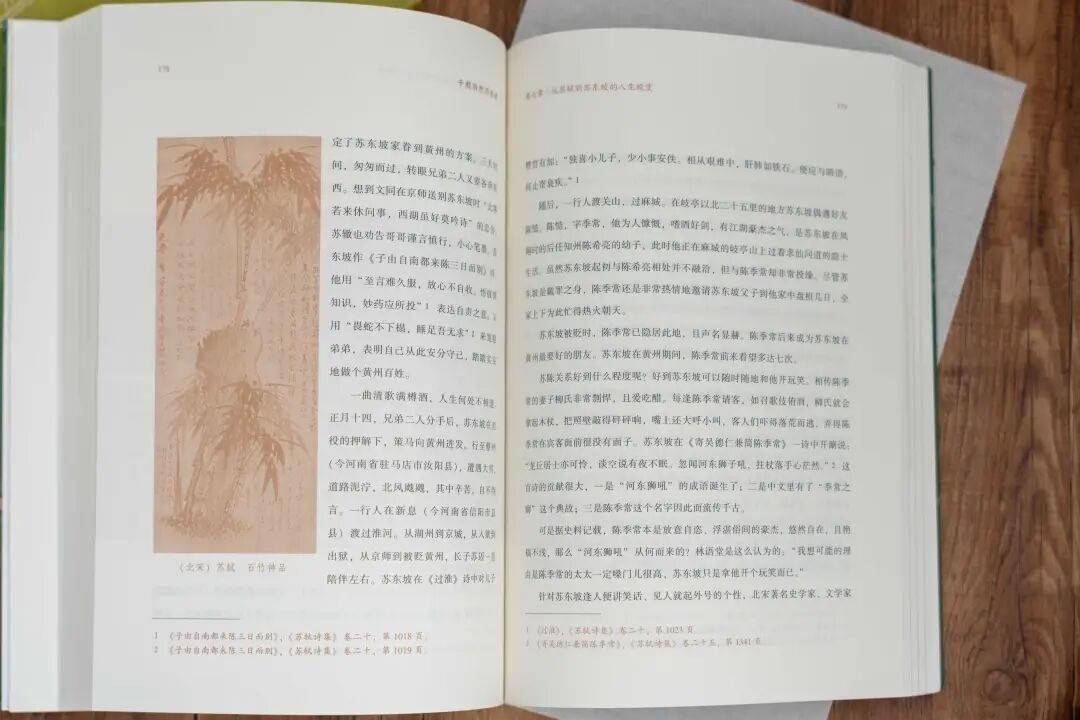 178
定了苏东坡家眷到黄州的方案。三天时
间，匆匆而过，转眼兄弟二人又要各奔东
西。想到文同在京师送别苏东坡时“北客
若来休问事，西湖虽好莫吟诗”的忠告，
苏辙也劝告哥哥谨言慎行，小心笔墨。苏
东坡作《子由自南都来陈三日而别》诗，
他用“至言难久服，放心不自收。悟彼善
知识，妙药应所投”1 表达自责之意，又
用“畏蛇不下榻，睡足吾无求”2 来宽慰
弟弟，表明自己从此安分守己，踏踏实实
地做个黄州百姓。
一曲清歌满樽酒，人生何处不相逢。
正月十四，兄弟二人分手后，苏东坡在差
役的押解下，策马向黄州进发。行至蔡州
（今河南省驻马店市汝阳县），遭遇大雪，
道路泥泞，北风飕飕，其中辛苦，自不待
言。一行人在新息（今河南省信阳市息
县）渡过淮河。从湖州到京城，从入狱到
出狱，从京师到被贬黄州，长子苏迈一直
陪伴左右。苏东坡在《过淮》诗中对儿子
（北宋）苏轼 石竹神品
1 《子由自南都来陈三日而别》，《苏轼诗集》卷二十，第 1018 页。
2 《子由自南都来陈三日而别》，《苏轼诗集》卷二十，第 1019 页。
第七章 从苏轼到苏东坡的人生蜕变
179
赞赏有加：“独喜小儿子，少小事安佚。相从艰难中，肝肺如铁石。便应与晤语，
何止寄衰疾。”1
随后，一行人渡关山，过麻城。在岐亭以北二十五里的地方苏东坡偶遇好友
陈慥。陈慥，字季常，他为人慷慨，嗜酒好剑，有江湖豪杰之气，是苏东坡在凤
翔时的后任知州陈希亮的幼子。此时他正在麻城的岐亭山上过着求仙问道的隐士
生活。虽然苏东坡起初与陈希亮相处并不融洽，但与陈季常却非常投缘。尽管苏
东坡是戴罪之身，陈季常还是非常热情地邀请苏东坡父子到他家中盘桓几日，全
家上下为此忙得热火朝天。
苏东坡被贬时，陈季常已隐居此地，且声名显赫。陈季常后来成为苏东坡在
黄州最要好的朋友。苏东坡在黄州期间，陈季常前来看望多达七次。
苏陈关系好到什么程度呢？好到苏东坡可以随时随地和他开玩笑。相传陈季
常的妻子柳氏非常剽悍，且爱吃醋。每逢陈季常请客，如召歌伎侑酒，柳氏就会
拿起木杖，把照壁敲得砰砰响，嘴上还大呼小叫，客人们吓得落荒而逃，弄得陈
季常在宾客面前很没有面子。苏东坡在《寄吴德仁兼简陈季常》一诗中开涮说：
“龙丘居士亦可怜，谈空说有夜不眠。忽闻河东狮子吼，拄杖落手心茫然。”2 这
首诗的贡献很大，一是“河东狮吼”的成语诞生了；二是中文里有了“季常之
癖”这个典故；三是陈季常这个名字因此而流传千古。
可是据史料记载，陈季常本是放意自恣、浮湛俗间的豪杰，悠然自在，自艳
福不浅，那么“河东狮吼”从何而来的？林语堂是这么认为的：“我想可能的理
由是陈季常的太太一定嗓门儿很高，苏东坡只是拿他开个玩笑而已。”
针对苏东坡逢人便讲笑话、见人就起外号的个性，北宋著名史学家、文学家
1 《过淮》，《苏轼诗集》卷二十，第 1023 页。
2 《寄吴德仁兼简陈季常》，《苏轼诗集》卷二十五，第 1341 页。